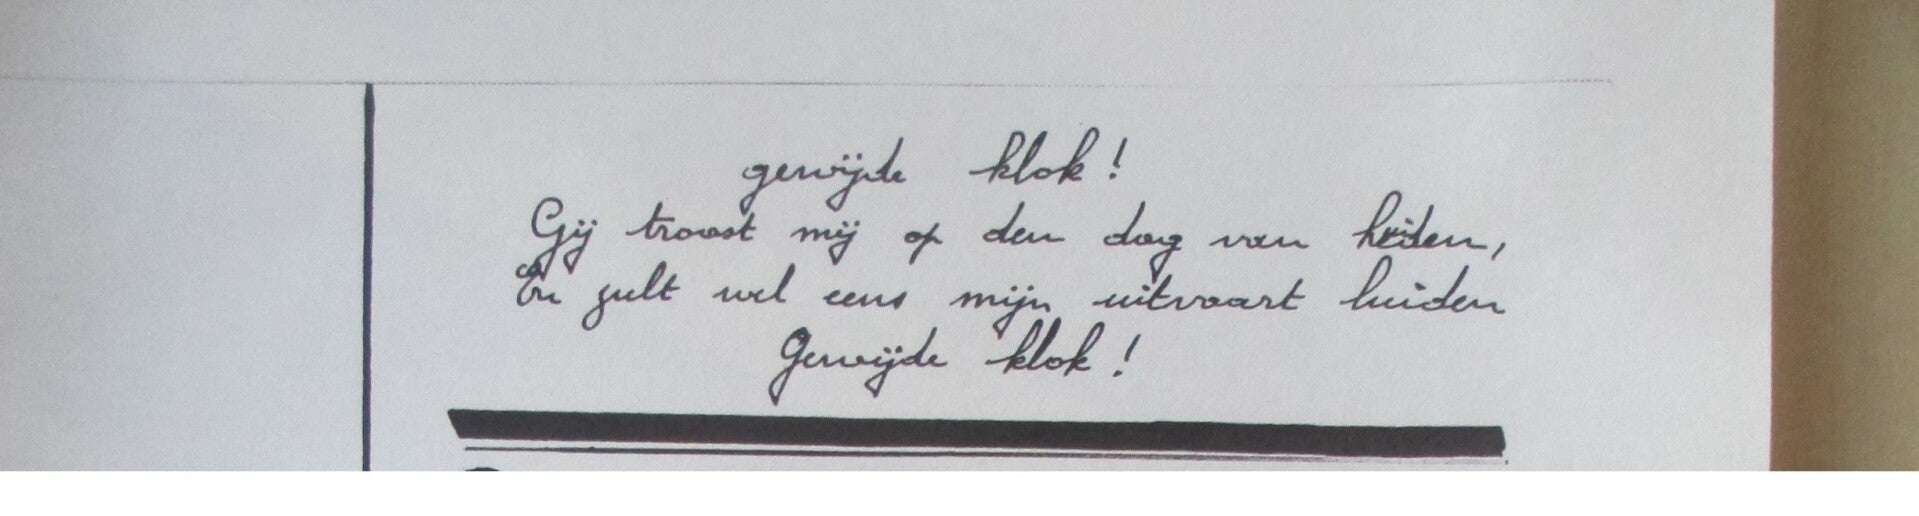 gewijde klok!
Gij troost mij op den dag van heiden,
En zult wel eens mijn uitvaart luiden
Gewijde klok!